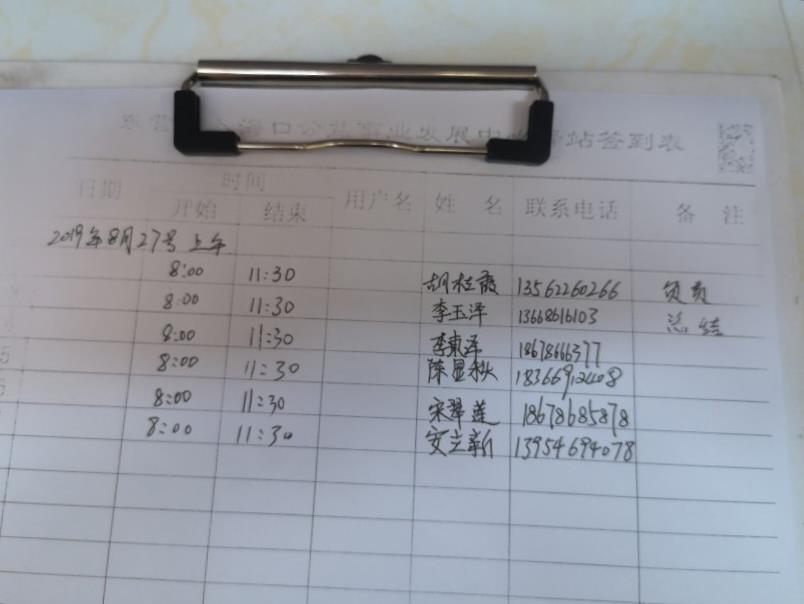 海口公共事业发展中心 站签到表
日期 时间 用户名 姓名 联系电话 备注
开始 结束
2019年8月27号 上午
8:00 11:30 胡桂霞 13562260266 负责
8:00 11:30 李玉泽 13668616103 总结
8:00 11:30 李東泽 18678666377
8:00 11:30 陈显秋 18366912408
8:00 11:30 宋翠莲 18678685878
8:00 11:30 安立新 13954694078